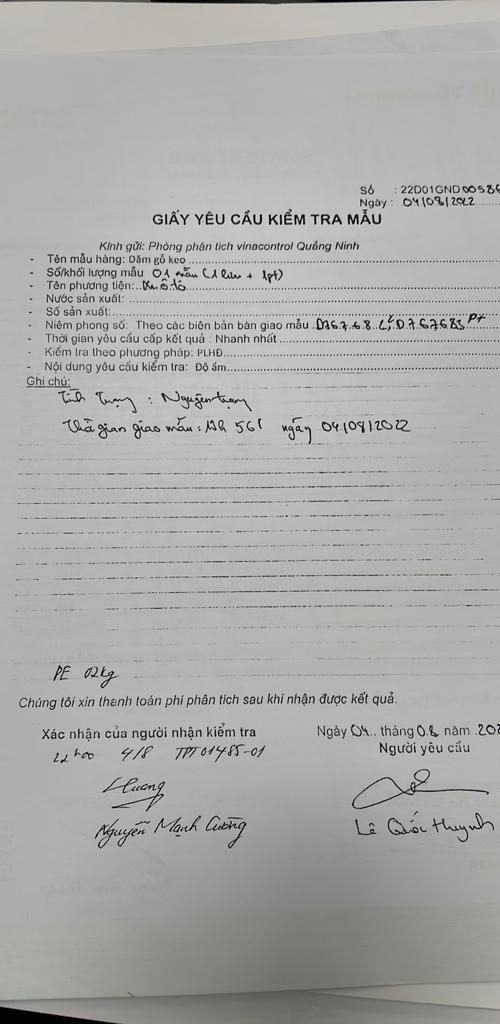 Số : 22D01GND00586
Ngày : 04/08/2022
GIẤY YÊU CẦU KIỂM TRA MẪU
Kính gửi: Phòng phân tích vinacontrol Quảng Ninh
- Tên mẫu hàng: Dăm gỗ keo
- Số/khối lượng mẫu 01 mẫu (1 lưu + 1pt)
- Tên phương tiện: Xe ô tô
- Nước sản xuất:
- Số sản xuất:
- Niêm phong số: Theo các biên bản bàn giao mẫu D767683 PT
- Thời gian yêu cầu cấp kết quả : Nhanh nhất
- Kiểm tra theo phương pháp: PLHĐ
- Nội dung yêu cầu kiểm tra: Độ ẩm
Ghi chú:
Tình Trạng : Nguyên trạng
Thời gian giao mẫu : ngày 04/08/2022
PE 02kg
Chúng tôi xin thanh toán phí phân tích sau khi nhận được kết quả.
Xác nhận của người nhận kiểm tra
22h00 4/8 TPT01485-01
Nguyễn Mạnh Cường
Ngày 04 tháng 08 năm 202
Người yêu cầu
Lê Quốc Huynh